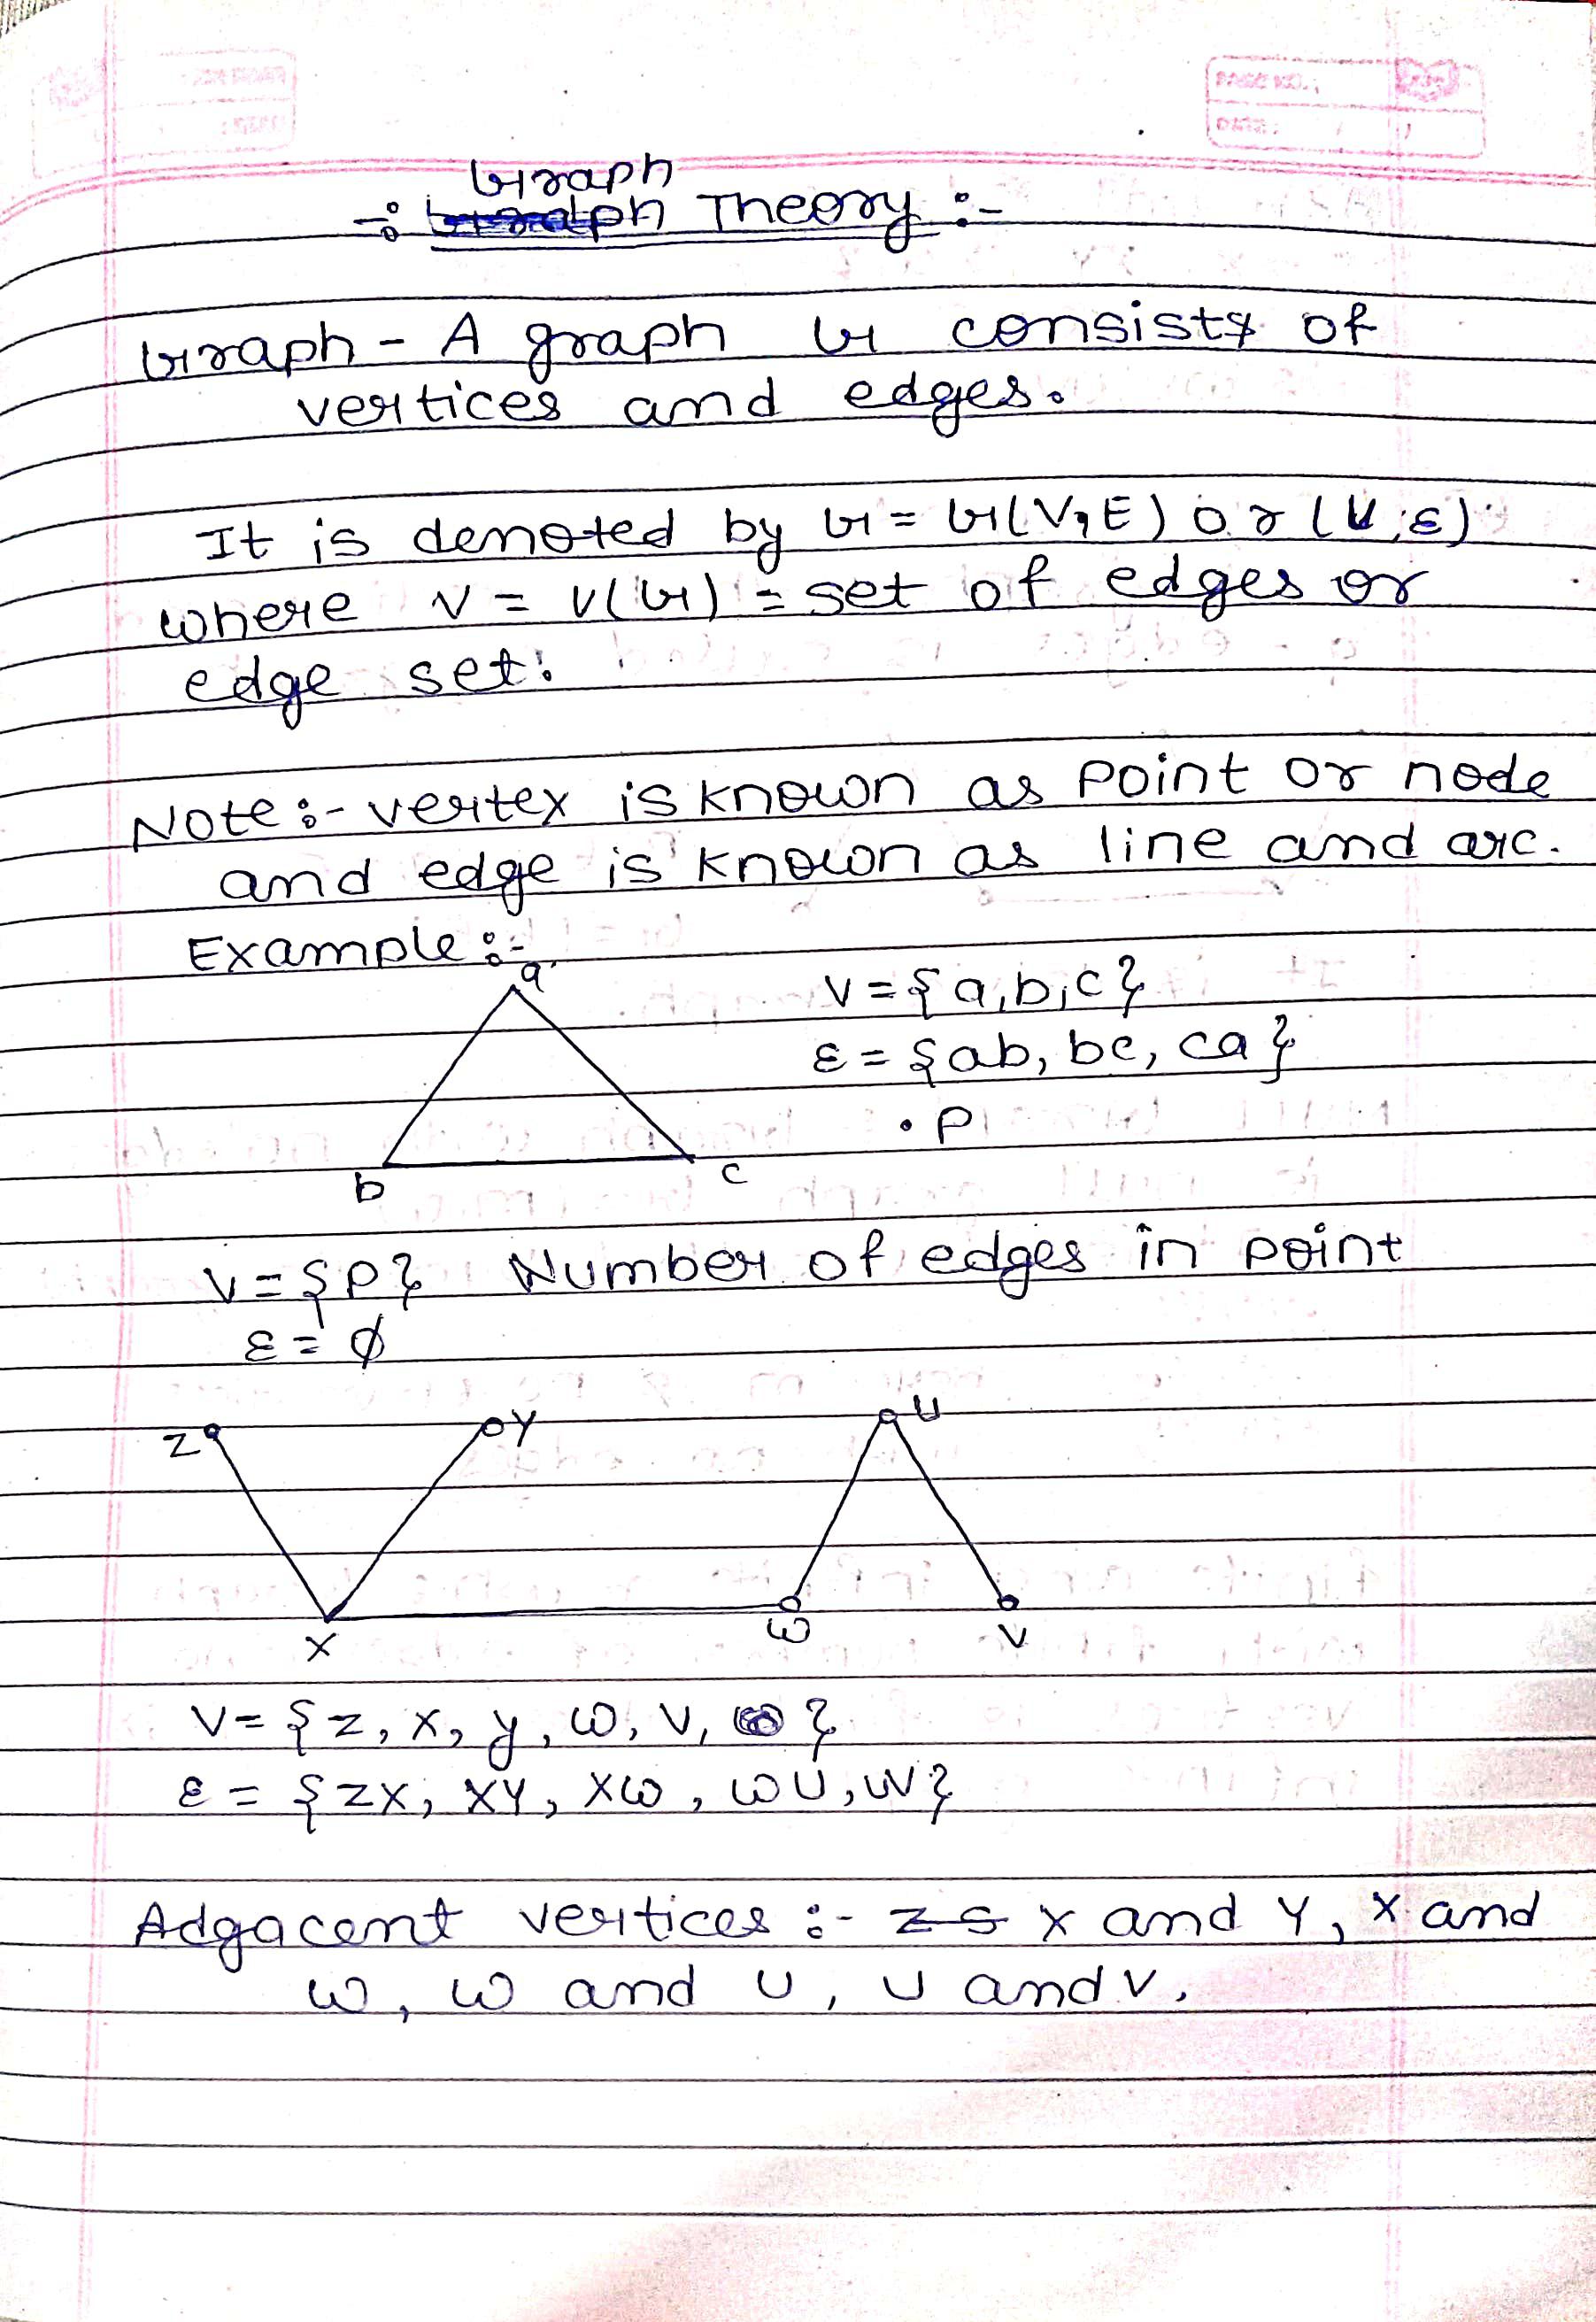 Graph
-: Graph Theory :-
Graph - A graph G consists of
vertices and edges.
It is denoted by G = G(V,E) or (V,ε)
where V = V(G) = set of edges or
edge set.
Note :- vertex is known as point or node
and edge is known as line and arc.
Example :-
a
V = {a,b,c}
ε = {ab, bc, ca}
. P
b c
V = {P} Number of edges in point
ε = ϕ
Z Y U
X W V
V = {z, x, y, w, v, }
ε = {zx, XY, XW, WU, UV}
Adgacent vertices :- X and Y, X and
W, W and U, U and V.